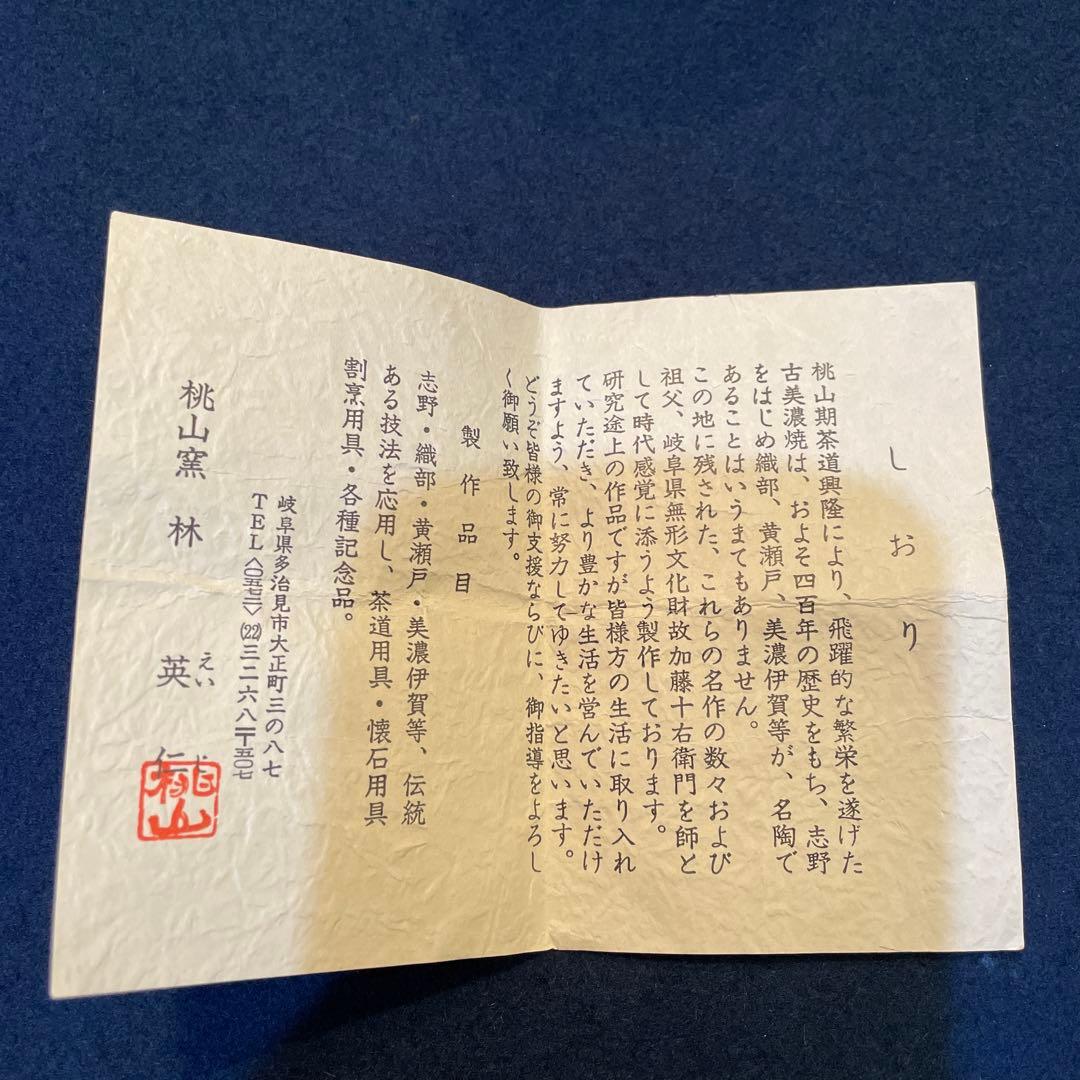 しおり
桃山期茶道興隆により、飛躍的な繁栄を遂げた
古美濃焼は、およそ四百年の歴史をもち、志野
をはじめ織部、黄瀬戸、美濃伊賀等が、名陶で
あることはいうまでもありません。
この地に残された、これらの名作の数々および
祖父、岐阜県無形文化財故加藤十右衛門を師と
して時代感覚に添うよう製作しております。
研究途上の作品ですが皆様方の生活に取り入れ
ていただき、より豊かな生活を営んでいただけ
ますよう、常に努力してゆきたいと思います。
どうぞ皆様の御支援ならびに、御指導をよろし
く御願い致します。
製作品目
志野・織部・黄瀬戸・美濃伊賀等、伝統
ある技法を応用し、茶道用具・懐石用具
割烹用具・各種記念品。
岐阜県多治見市大正町三の八七
TEL〈〇五七二〉(22)三二六八〒五〇七
桃山窯 林 英仁
えいじ
桃山